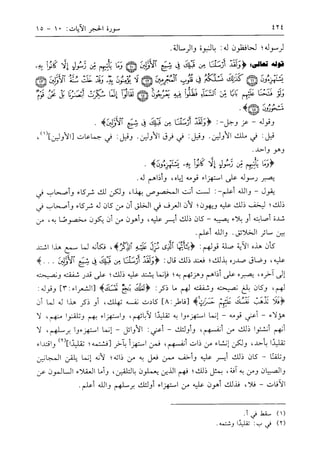 ٤٢٤ سورة الحجر الآيات: ١٠ - ١٥
لرسوله؛ لحافظون له: بالنبوة والرسالة.
قوله تعالى: ﴿وَلَقَدْ أَرْسَلْنَا مِن قَبْلِكَ فِي شِيَعِ الْأَوَّلِينَ ۝ وَمَا يَأْتِيهِم مِّن رَّسُولٍ إِلَّا كَانُوا بِهِ
يَسْتَهْزِءُونَ ۝ كَذَٰلِكَ نَسْلُكُهُ فِي قُلُوبِ الْمُجْرِمِينَ ۝ لَا يُؤْمِنُونَ بِهِ وَقَدْ خَلَتْ سُنَّةُ الْأَوَّلِينَ ۝
وَلَوْ فَتَحْنَا عَلَيْهِم بَابًا مِّنَ السَّمَاءِ فَظَلُّوا فِيهِ يَعْرُجُونَ ۝ لَقَالُوا إِنَّمَا سُكِّرَتْ أَبْصَارُنَا بَلْ نَحْنُ قَوْمٌ
مَّسْحُورُونَ ۝﴾.
وقوله - عز وجل -: ﴿وَلَقَدْ أَرْسَلْنَا مِن قَبْلِكَ فِي شِيَعِ الْأَوَّلِينَ﴾.
قيل: في ملل الأولين. وقيل: في فرق الأولين. وقيل: في جماعات [الأولين](١)،
وهو واحد.
﴿وَمَا يَأْتِيهِم مِّن رَّسُولٍ إِلَّا كَانُوا بِهِ يَسْتَهْزِءُونَ﴾.
يصبر رسوله على استهزاء قومه إياه، وأذاهم له.
يقول - والله أعلم -: لست أنت المخصوص بهذا، ولكن لك شركاء وأصحاب في
ذلك؛ ليخف ذلك عليه ويهون؛ لأن العرف في الخلق أن من كان له شركاء وأصحاب في
شدة أصابته أو بلاء يصيبه - كان ذلك أيسر عليه، وأهون من أن يكون مخصوصًا به، من
بين سائر الخلائق. والله أعلم.
كأن هذه الآية صلة قولهم: ﴿يَا أَيُّهَا الَّذِي نُزِّلَ عَلَيْهِ الذِّكْرُ﴾، فكأنه لما سمع هذا اشتد
عليه، وضاق صدره بذلك؛ فعند ذلك قال: ﴿وَلَقَدْ أَرْسَلْنَا مِن قَبْلِكَ فِي شِيَعِ الْأَوَّلِينَ . . .﴾
إلى آخره، يصبره على أذاهم وهزئهم به؛ فإنما يشتد عليه ذلك؛ على قدر شفقته ونصيحته
لهم، وكان بلغ نصيحته وشفقته لهم ما ذكر: ﴿لَعَلَّكَ بَاخِعٌ نَّفْسَكَ﴾ [الشعراء: ٣] وقوله:
﴿فَلَا تَذْهَبْ نَفْسُكَ عَلَيْهِمْ حَسَرَاتٍ﴾ [فاطر: ٨] كادت نفسه تهلك، أو ذكر هذا له لما أن
هؤلاء - أعني قومه - إنما استهزءوا به تقليدًا لآبائهم، واستهزاء بهم وتلقنوا منهم، لا
أنهم أنشئوا ذلك من أنفسهم، وأولئك - أعني: الأوائل - إنما استهزءوا برسلهم، لا
تقليدًا بأحد، ولكن إنشاء من ذات أنفسهم، فمن استهزأ بآخر [فشتمه؛ تقليدًا](٢) واقتداء
وتلقنًا - كان ذلك أيسر عليه وأخف ممن فعل به من ذاته؛ لأنه إنما يلقن المجانين
والصبيان ومن به آفة، بمثل ذلك؛ فهم الذين يعملون بالتلقين، وأما العقلاء السالمون عن
الآفات - فلا، فذلك أهون عليه من استهزاء أولئك برسلهم والله أعلم.
(١) سقط في أ.
(٢) في ب: تقليدًا وشتمه.